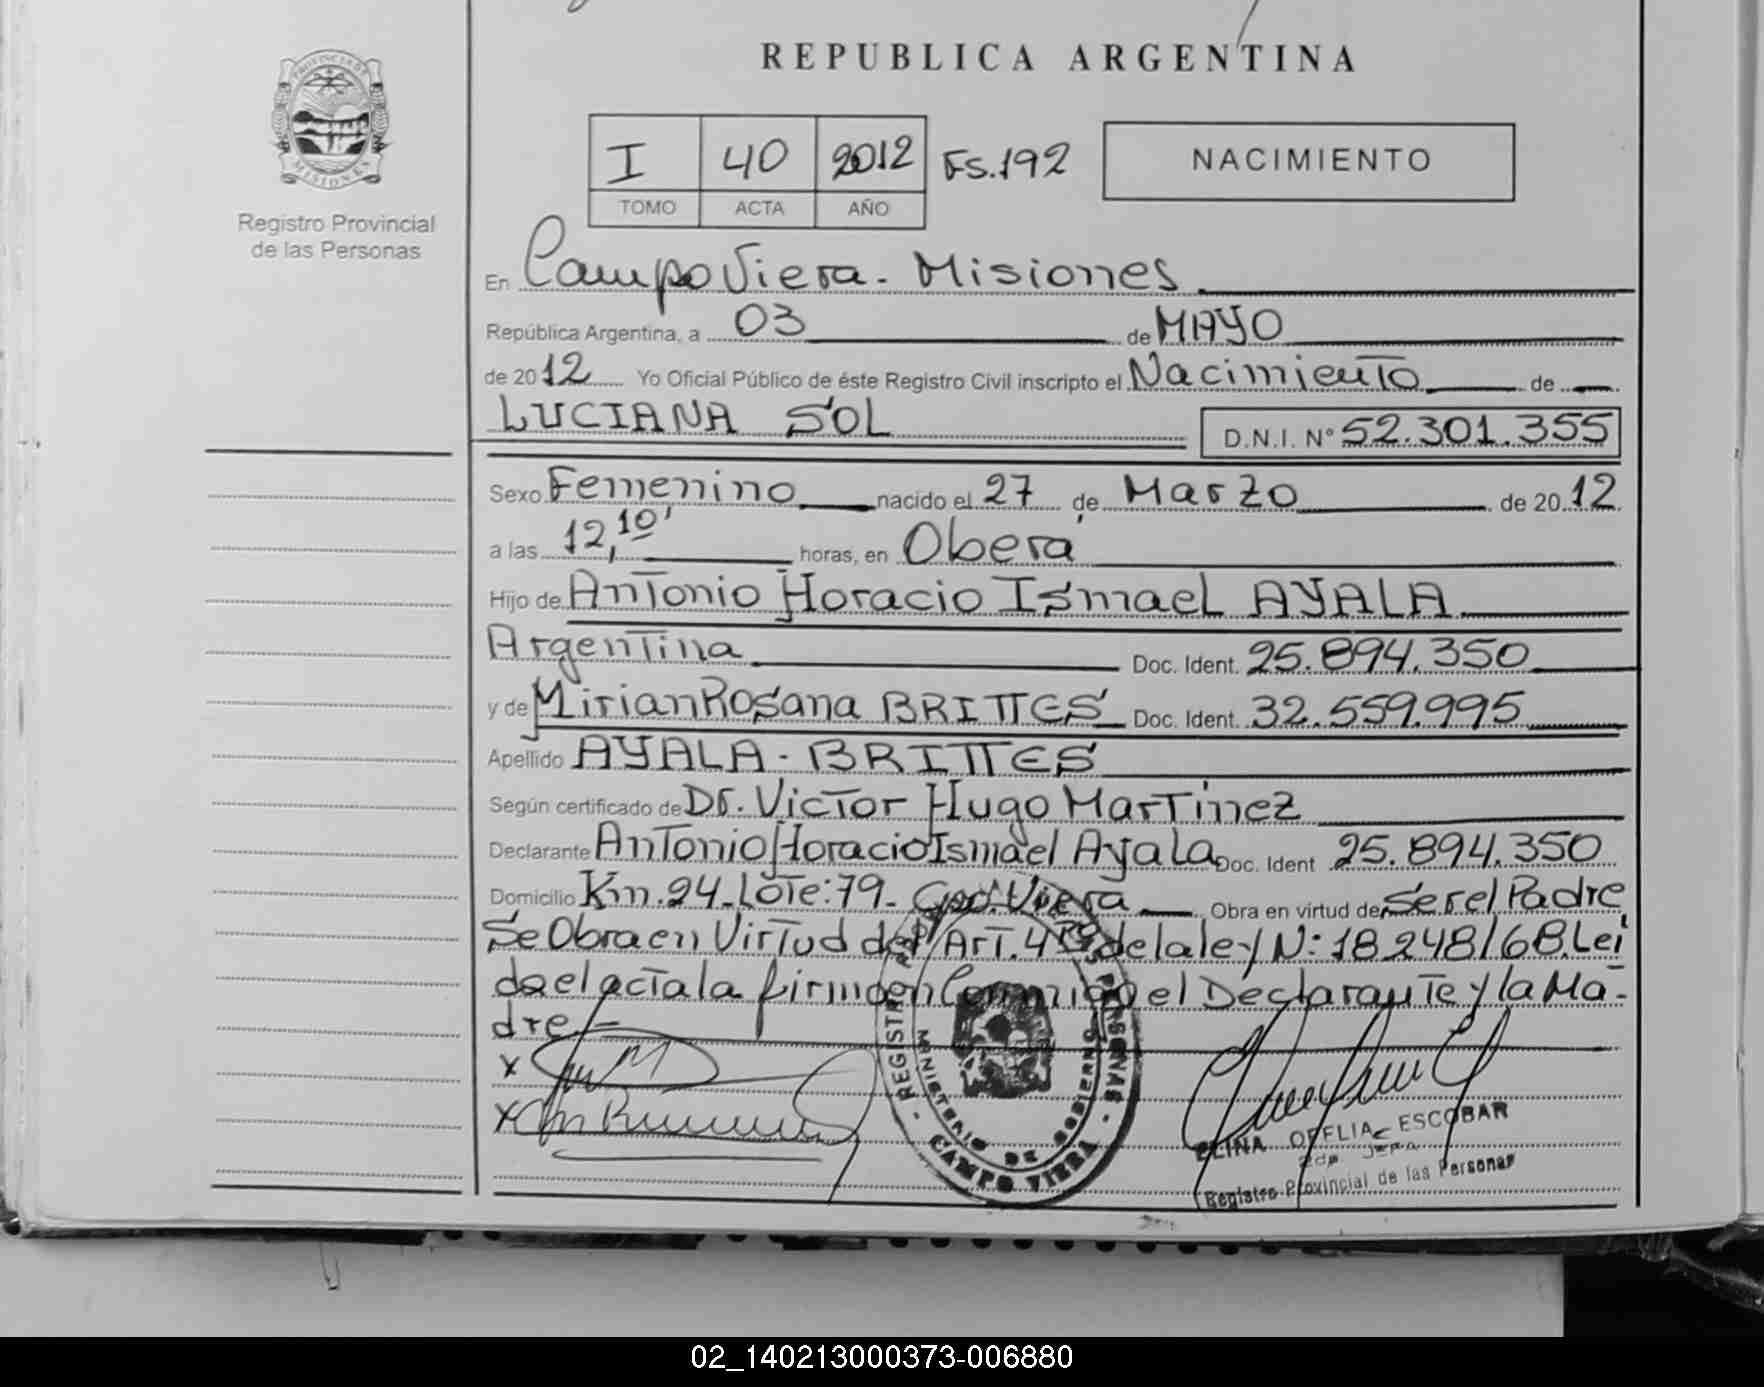 REPUBLICA ARGENTINA
PROVINCIA DE MISIONES
Registro Provincial
de las Personas
I 40 2012 Fs.192
TOMO ACTA AÑO
NACIMIENTO
En Campo Viera - Misiones
República Argentina, a 03 de MAYO
de 2012 Yo Oficial Público de éste Registro Civil inscripto el Nacimiento de
LUCIANA SOL D.N.I. Nº 52.301.355
Sexo Femenino nacido el 27 de Marzo de 2012
a las 12,10' horas, en Oberá
Hijo de Antonio Horacio Ismael AYALA
Argentina Doc. Ident. 25.894.350
y de Mirian Rosana BRITTES Doc. Ident. 32.559.995
Apellido AYALA - BRITTES
Según certificado de Dr. Victor Hugo Martinez
Declarante Antonio Horacio Ismael Ayala Doc. Ident 25.894.350
Domicilio Km. 24 - Lote: 79 - Cpo. Viera Obra en virtud de Ser el Padre
Se Obra en Virtud del Art. 4to de la ley N: 18.248/68. Lei
da el acta la firman Conmigo el Declarante y la Ma-
dre. -
x
x
REGISTRO PERSONAS
MINISTERIO DE GOBIERNO
CAMPO VIERA
ELINA OFELIA ESCOBAR
Registro Provincial de las Personas
02_140213000373-006880